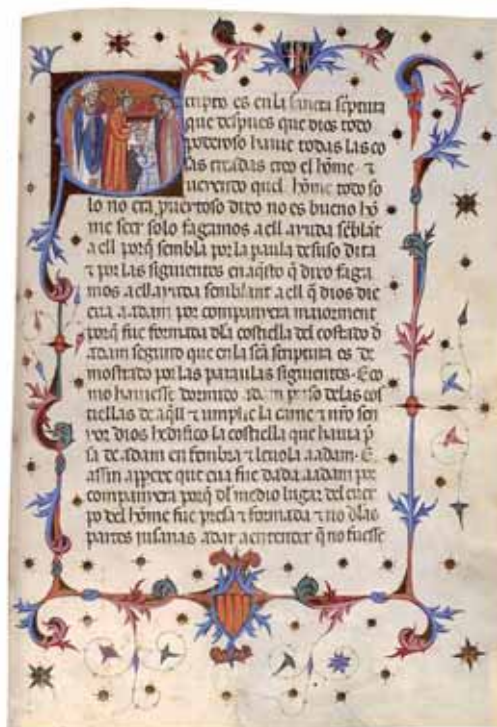 cripto es en la sancta sc̄ptura
que despues que dios todo
poderoso hauie todas las co
sas criadas creo el hōme ⁊
ueyendo quel hōme todo so
lo no era puertoso dixo no es bueno hō
me seer solo fagamos a ell ayuda sēblāt
a ell porq̄ sembla por la paula desuso dita
⁊ por las siguientes en aq̄sto q̄ dixo faga
mos a ell ayuda semblant a ell q̄ dios die
eua a adam por companyera maiorment
porq̄ fue formada dla costiella del costado d̄
adam segunt que en la scā scriptura es de
mostrado por las paraulas siguientes. E co
mo hauiesse dormido adam p̄so de las cos
tiellas de aq̄ll ⁊ umplie la carne ⁊ nr̄o sen
yor dios hedifico la costiella que hauia p̄
sa de adam en fembra ⁊ leuola a adam. E
assin appere que eua fue dada a adam por
companyera porq̄ dl medio lugar del cuer
po del hōme fue presa ⁊ formada ⁊ no dlas
partes iusanas a dar a entender q̄ no fuesse